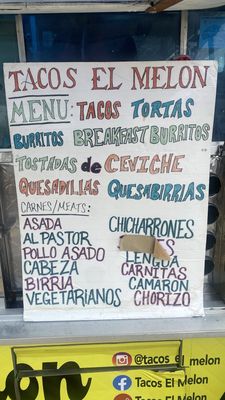 TACOS EL MELON
MENU: TACOS TORTAS
BURRITOS BREAKFAST BURRITOS
TOSTADAS de CEVICHE
QUESADILLAS QUESABIRRIAS
CARNES/MEATS:
ASADA
AL PASTOR
POLLO ASADO
CABEZA
BIRRIA
VEGETARIANOS
CHICHARRONES
LENGUA
CARNITAS
CAMARON
CHORIZO
@tacos_el melon
Tacos El Melon